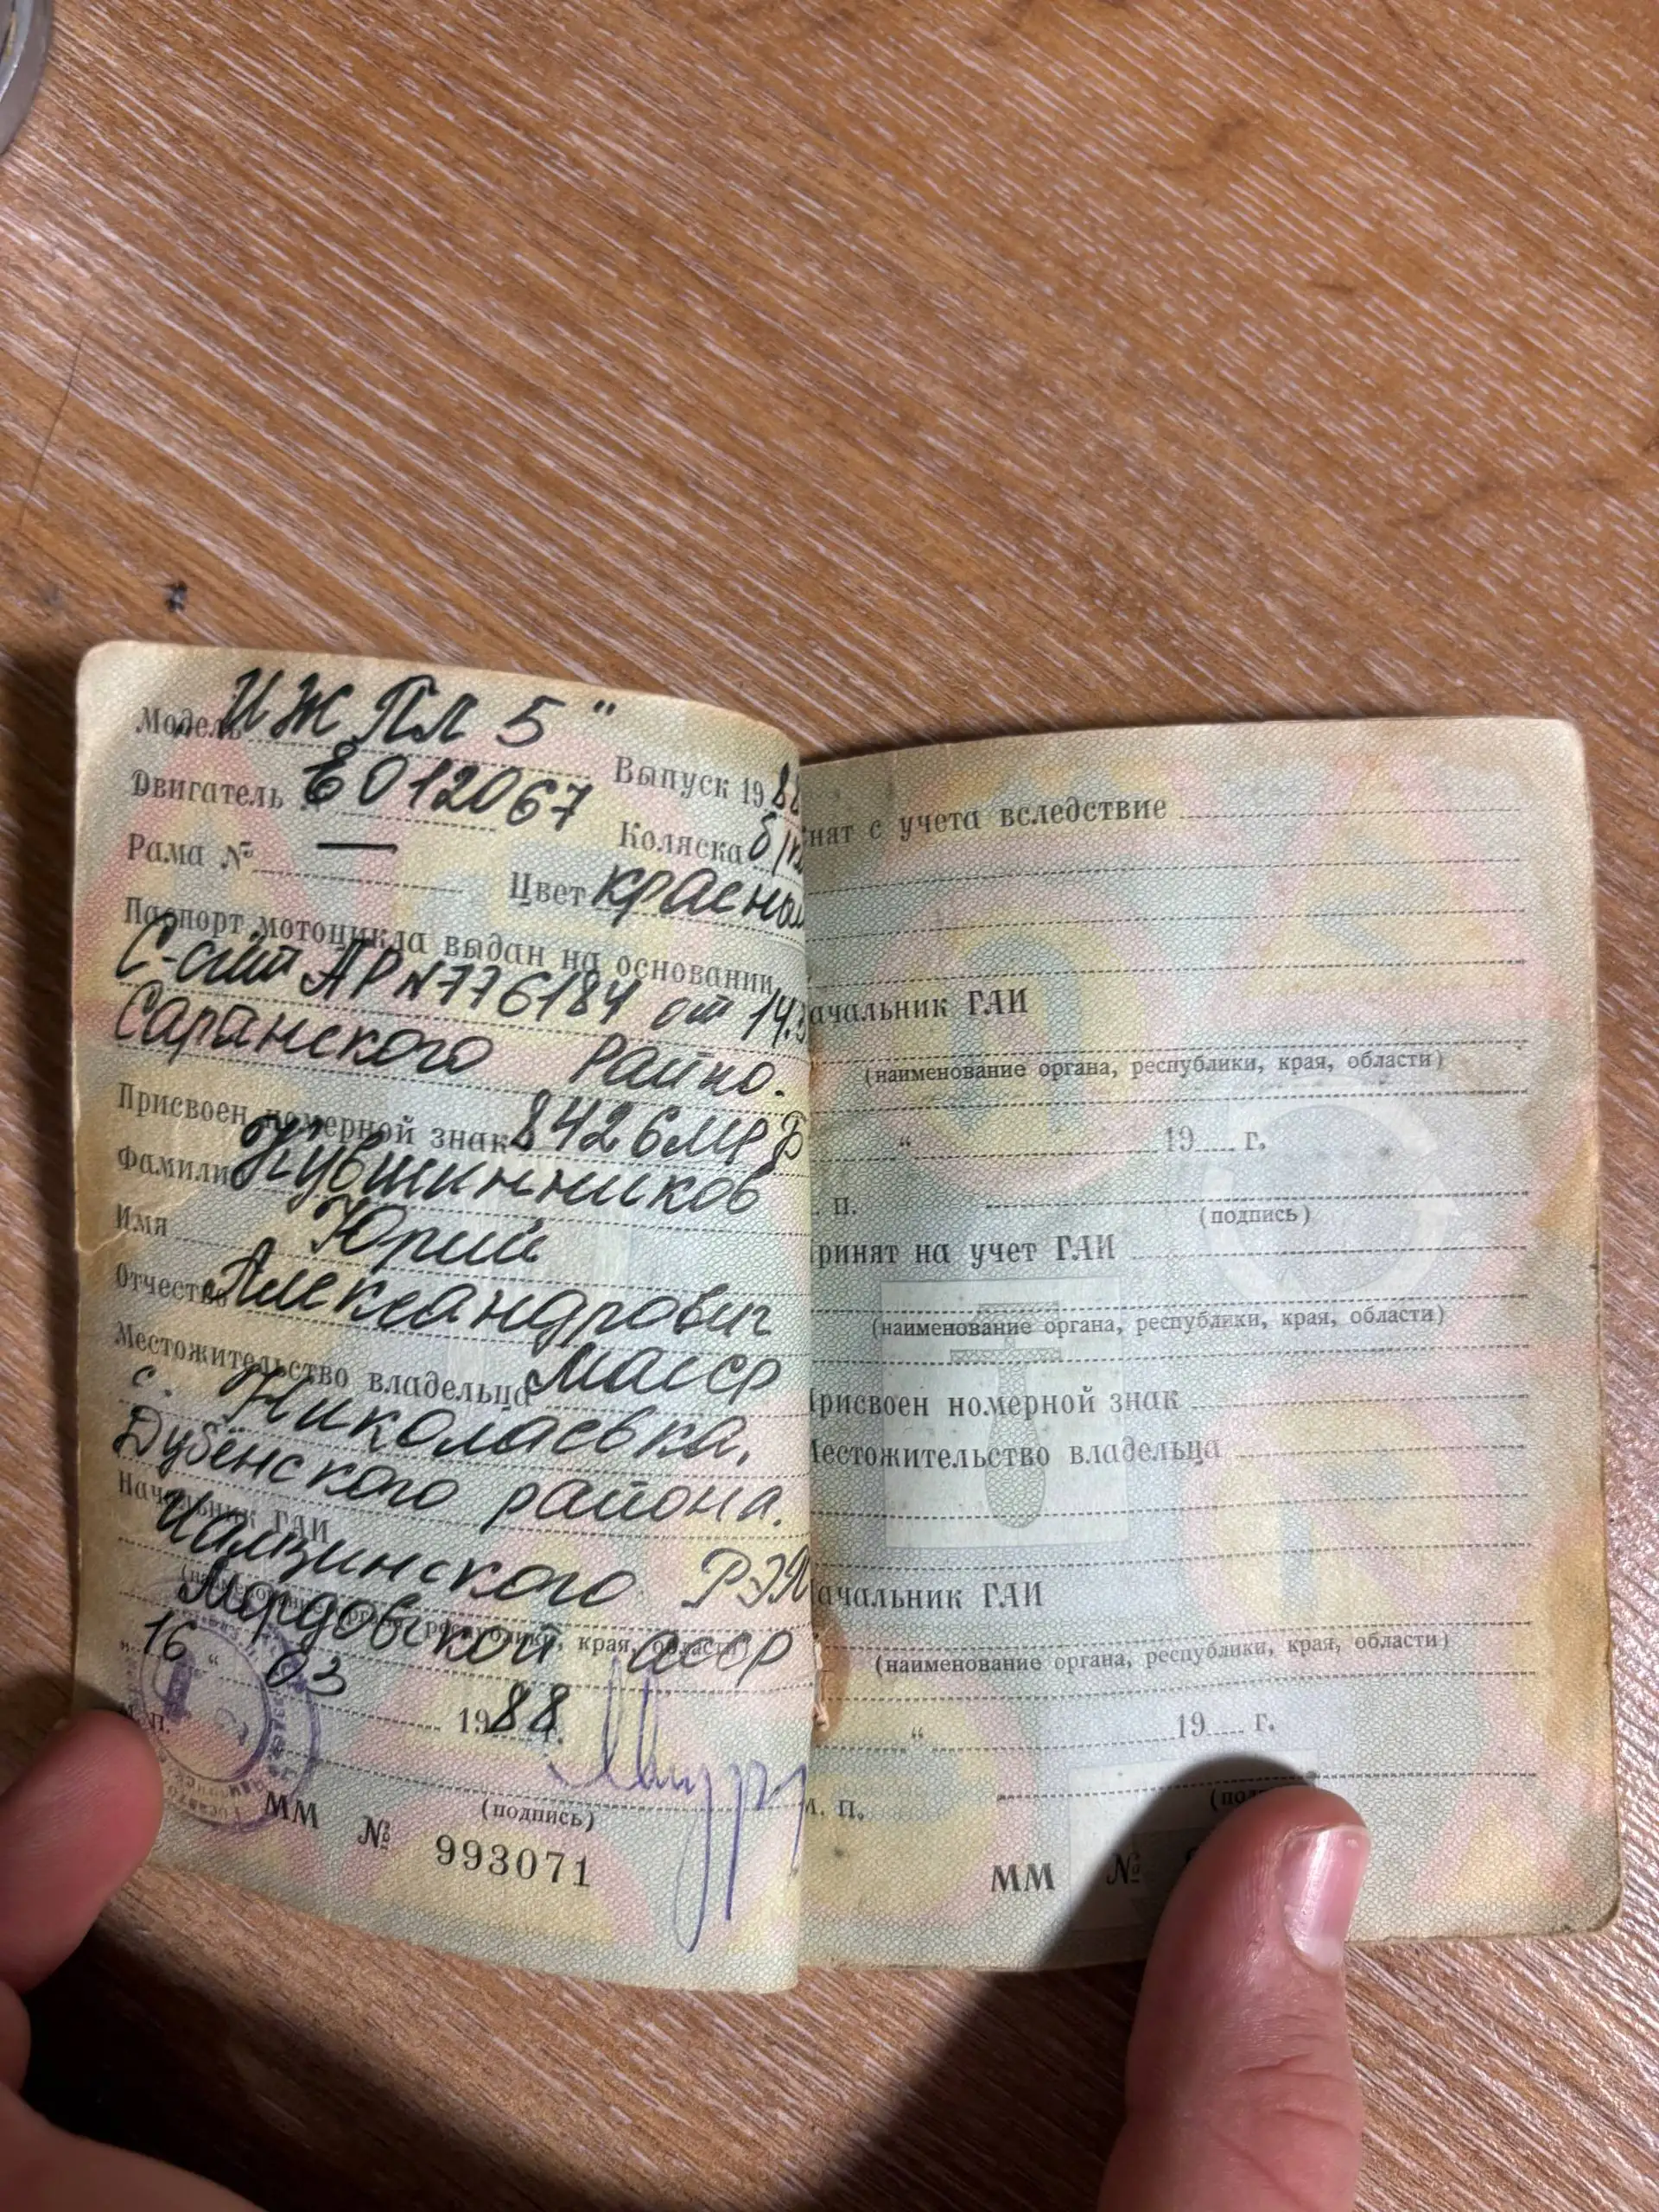 Модель ИЖ Пл 5"
Двигатель Е012067 Выпуск 1988
Рама № — Коляска б/к
Цвет красный
Паспорт мотоцикла выдан на основании
С-счёт АР N776184 от 14.3
Саранского Райпо.
Присвоен номерной знак 8426МРБ
Фамилия Кувшинников
Имя Юрий
Отчество Александрович
Местожительство владельца МАССР
с. Николаевка,
Дубёнского района.
Начальник ГАИ
Чамзинского РЭО
(наименование органа, республики, края, области)
Мордовской АССР
"16" 03 1988 г.
М. П.
(подпись)
ММ № 993071
нят с учета вследствие
ачальник ГАИ
(наименование органа, республики, края, области)
" 19 г.
. П.
(подпись)
ринят на учет ГАИ
(наименование органа, республики, края, области)
Присвоен номерной знак
Местожительство владельца
ачальник ГАИ
(наименование органа, республики, края, области)
" 19 г.
М. П.
ММ №